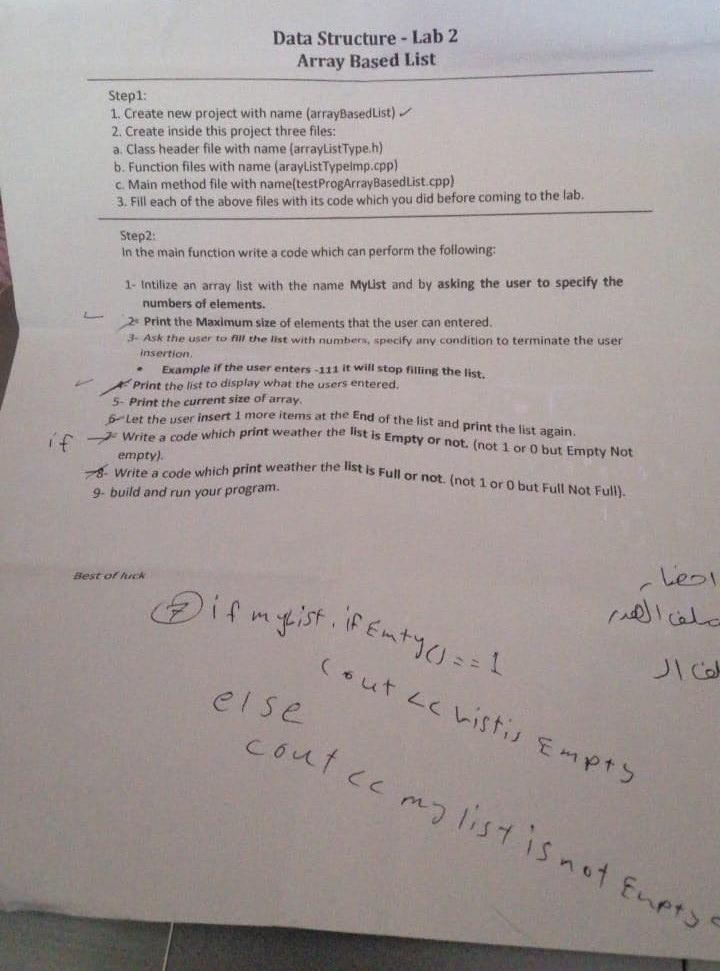 Data Structure - Lab 2
Array Based List
Step1:
1. Create new project with name (arrayBasedList) ✓
2. Create inside this project three files:
a. Class header file with name (arrayListType.h)
b. Function files with name (arayListTypeImp.cpp)
c. Main method file with name(testProgArrayBasedList.cpp)
3. Fill each of the above files with its code which you did before coming to the lab.
Step2:
In the main function write a code which can perform the following:
1- Intilize an array list with the name MyList and by asking the user to specify the
numbers of elements.
2- Print the Maximum size of elements that the user can entered.
3- Ask the user to fill the list with numbers, specify any condition to terminate the user
insertion.
• Example if the user enters -111 it will stop filling the list.
4- Print the list to display what the users entered.
5- Print the current size of array.
6- Let the user insert 1 more items at the End of the list and print the list again.
if 7- Write a code which print weather the list is Empty or not. (not 1 or 0 but Empty Not
empty).
8- Write a code which print weather the list is Full or not. (not 1 or 0 but Full Not Full).
9- build and run your program.
Best of luck
7 if myList.ifEmty()==1
cout << List is Empty
else
cout << my list is not Empty